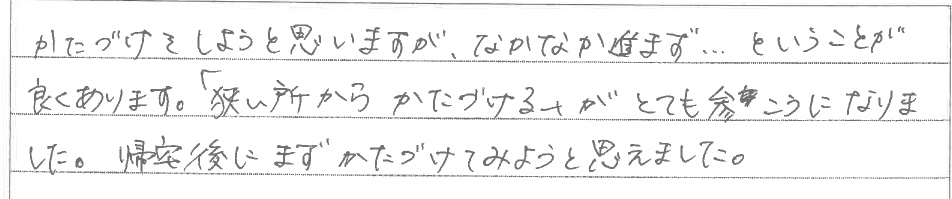 かたづけをしようと思いますが、なかなか進まず…ということが
良くあります。「狭い所からかたづける」がとても参こうになりま
した。帰宅後にまずかたづけてみようと思えました。